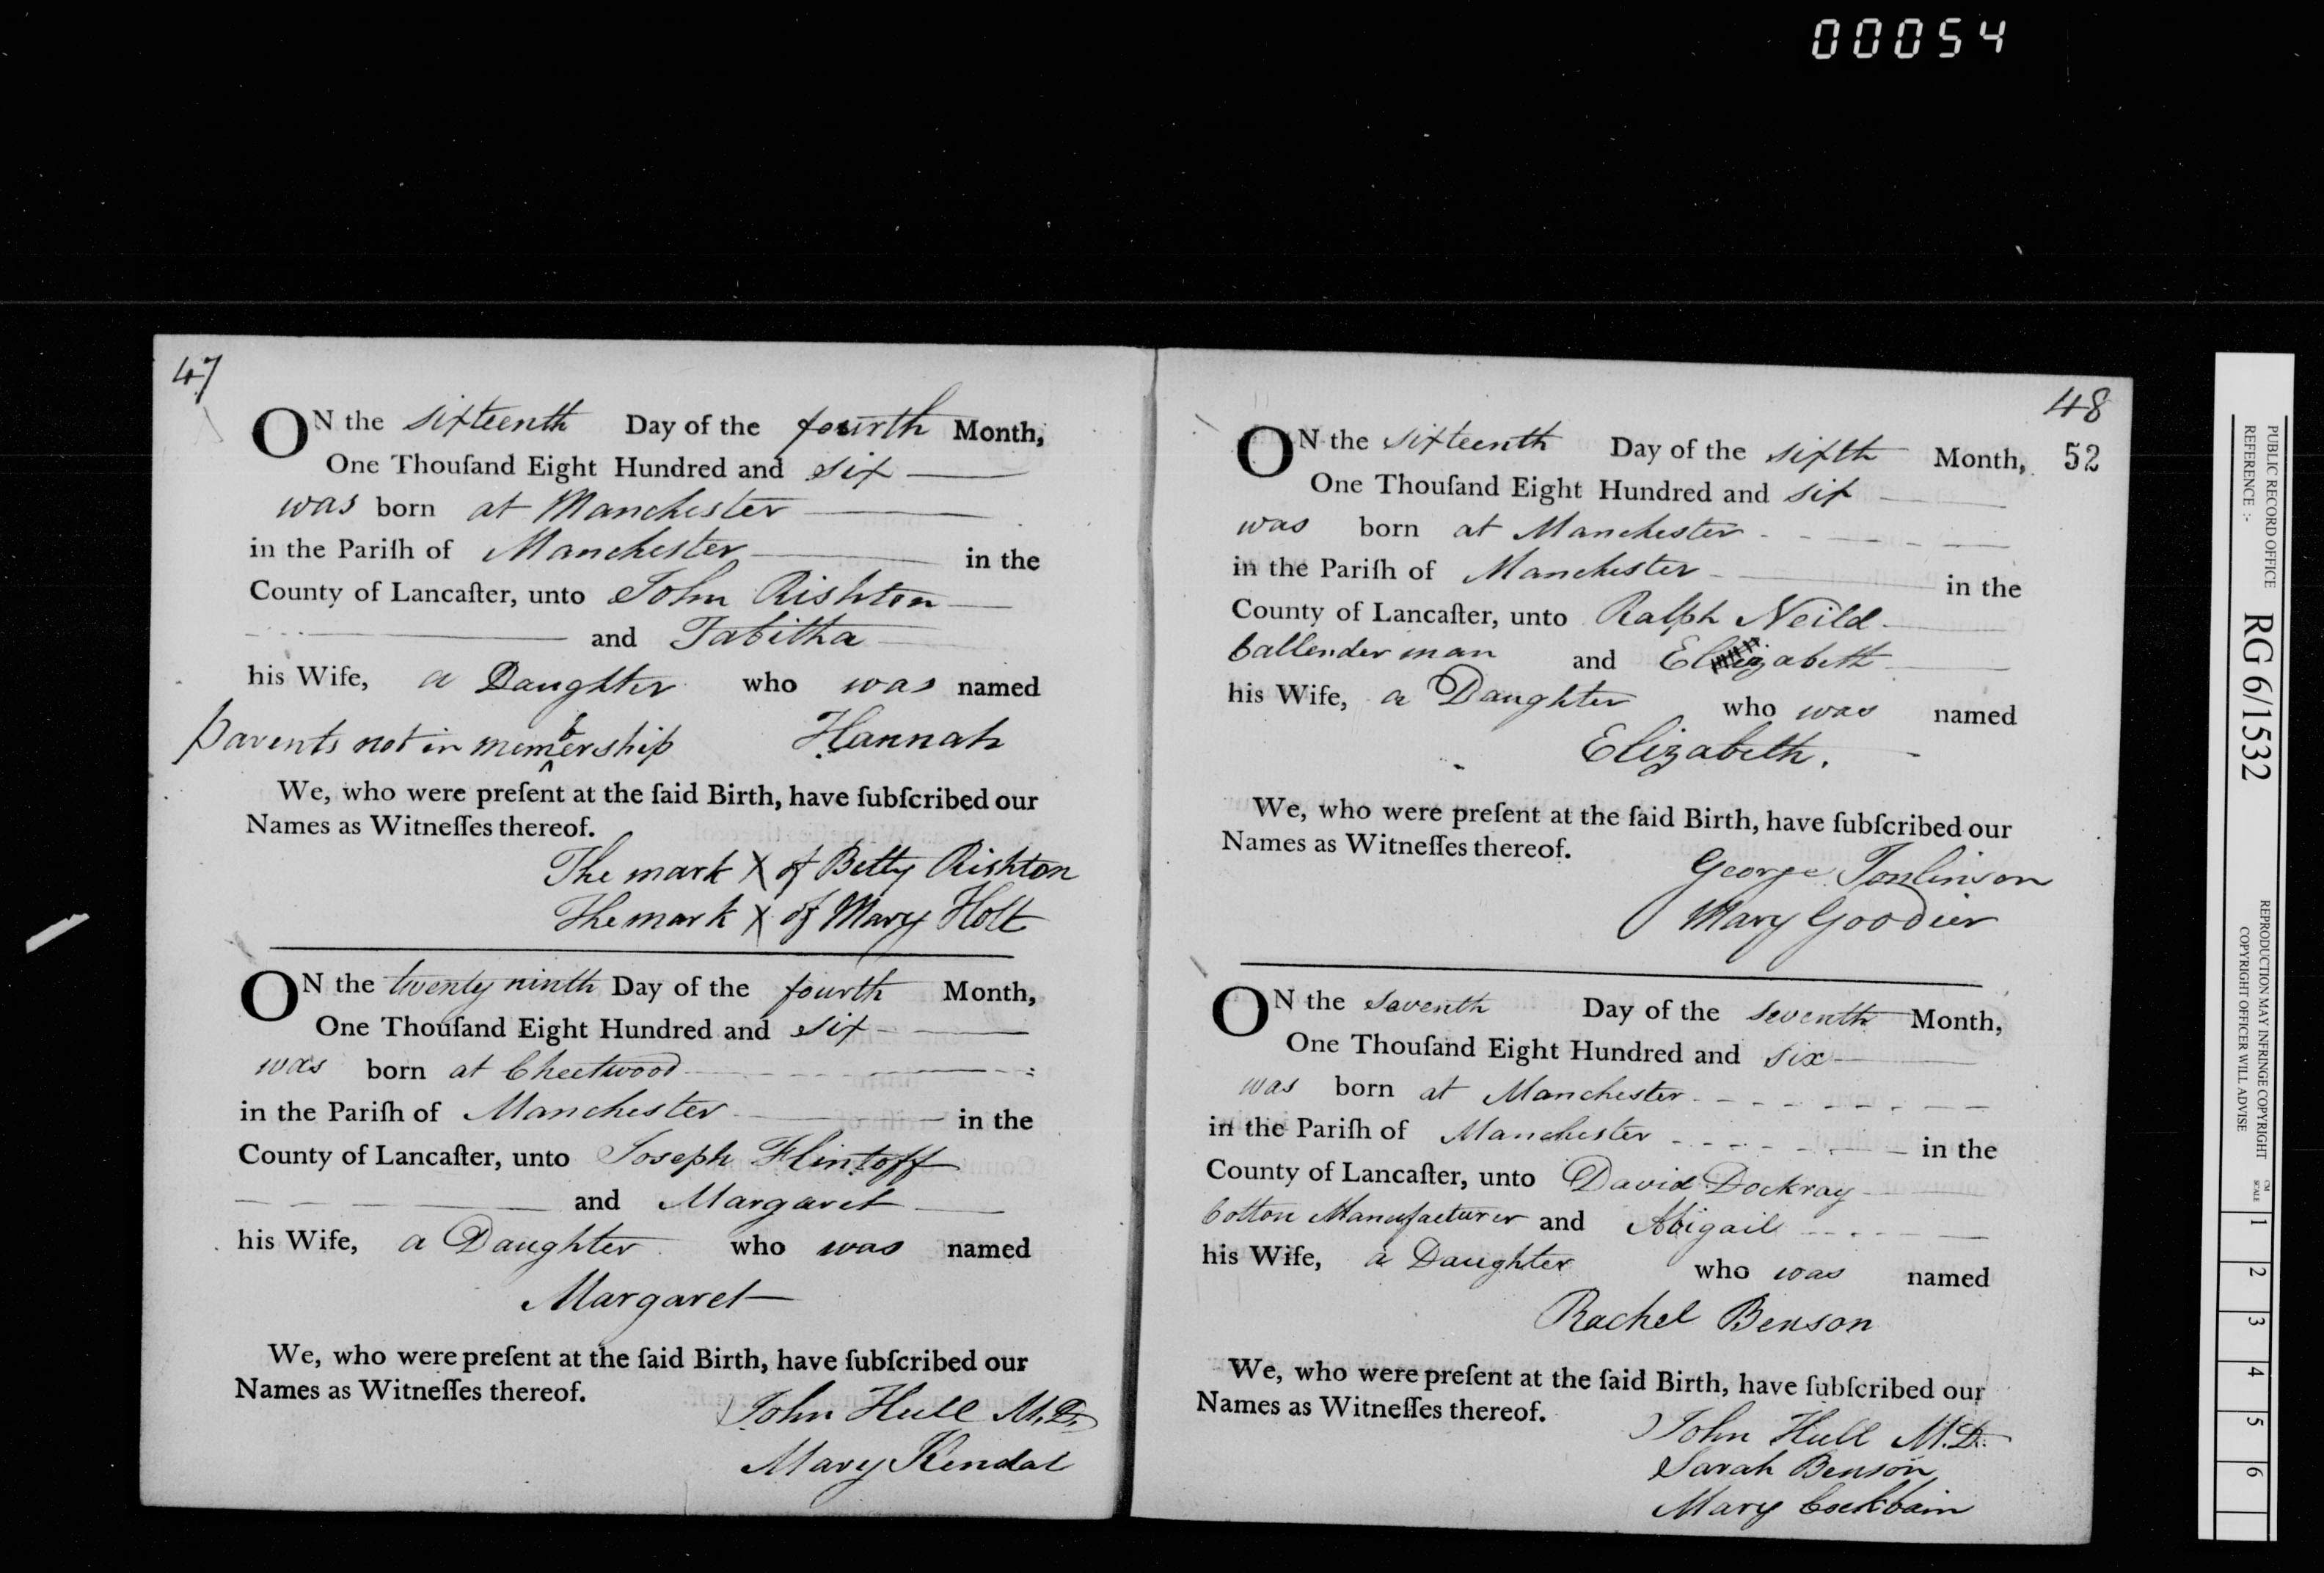 00054
47
ON the sixteenth Day of the fourth Month,
One Thouſand Eight Hundred and six
was born at Manchester
in the Pariſh of Manchester in the
County of Lancaſter, unto John Rishton
and Tabitha
his Wife, a Daughter who was named
parents not in membership Hannah
We, who were preſent at the ſaid Birth, have ſubſcribed our
Names as Witneſſes thereof.
The mark X of Betty Rishton
The mark X of Mary Holt
ON the twenty ninth Day of the fourth Month,
One Thouſand Eight Hundred and six
was born at Cheetwood
in the Pariſh of Manchester in the
County of Lancaſter, unto Joseph Flintoff
and Margaret
his Wife, a Daughter who was named
Margaret
We, who were preſent at the ſaid Birth, have ſubſcribed our
Names as Witneſſes thereof.
John Hull M.D.
Mary Kendal
48
52
ON the sixteenth Day of the sixth Month,
One Thouſand Eight Hundred and six
was born at Manchester
in the Pariſh of Manchester in the
County of Lancaſter, unto Ralph Neild
Callender man and Elizabeth
his Wife, a Daughter who was named
Elizabeth.
We, who were preſent at the ſaid Birth, have ſubſcribed our
Names as Witneſſes thereof.
George Tomlinson
Mary Goodier
ON the seventh Day of the seventh Month,
One Thouſand Eight Hundred and six
was born at Manchester
in the Pariſh of Manchester in the
County of Lancaſter, unto David Dockray
Cotton Manufacturer and Abigail
his Wife, a Daughter who was named
Rachel Benson
We, who were preſent at the ſaid Birth, have ſubſcribed our
Names as Witneſſes thereof.
John Hull M.D.
Sarah Benson
Mary Cockbain
PUBLIC RECORD OFFICE
REFERENCE :-
RG 6/1532
REPRODUCTION MAY INFRINGE COPYRIGHT
COPYRIGHT OFFICER WILL ADVISE
CM
SCALE
1
2
3
4
5
6